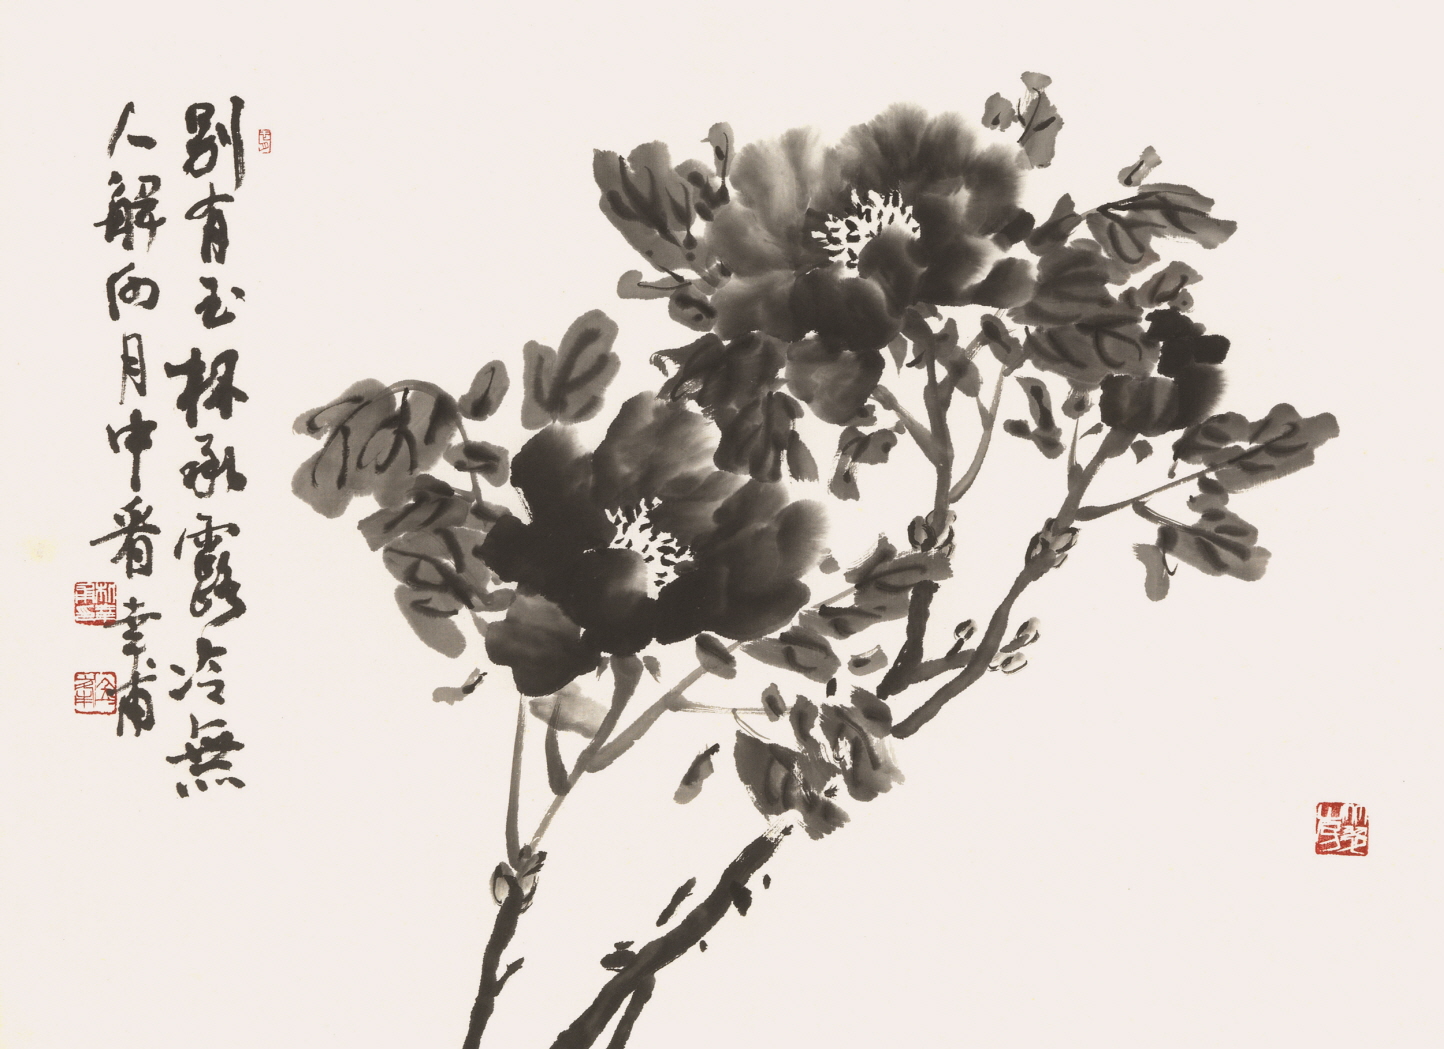 別有玉杯承露冷無
人解向月中看 幸甫